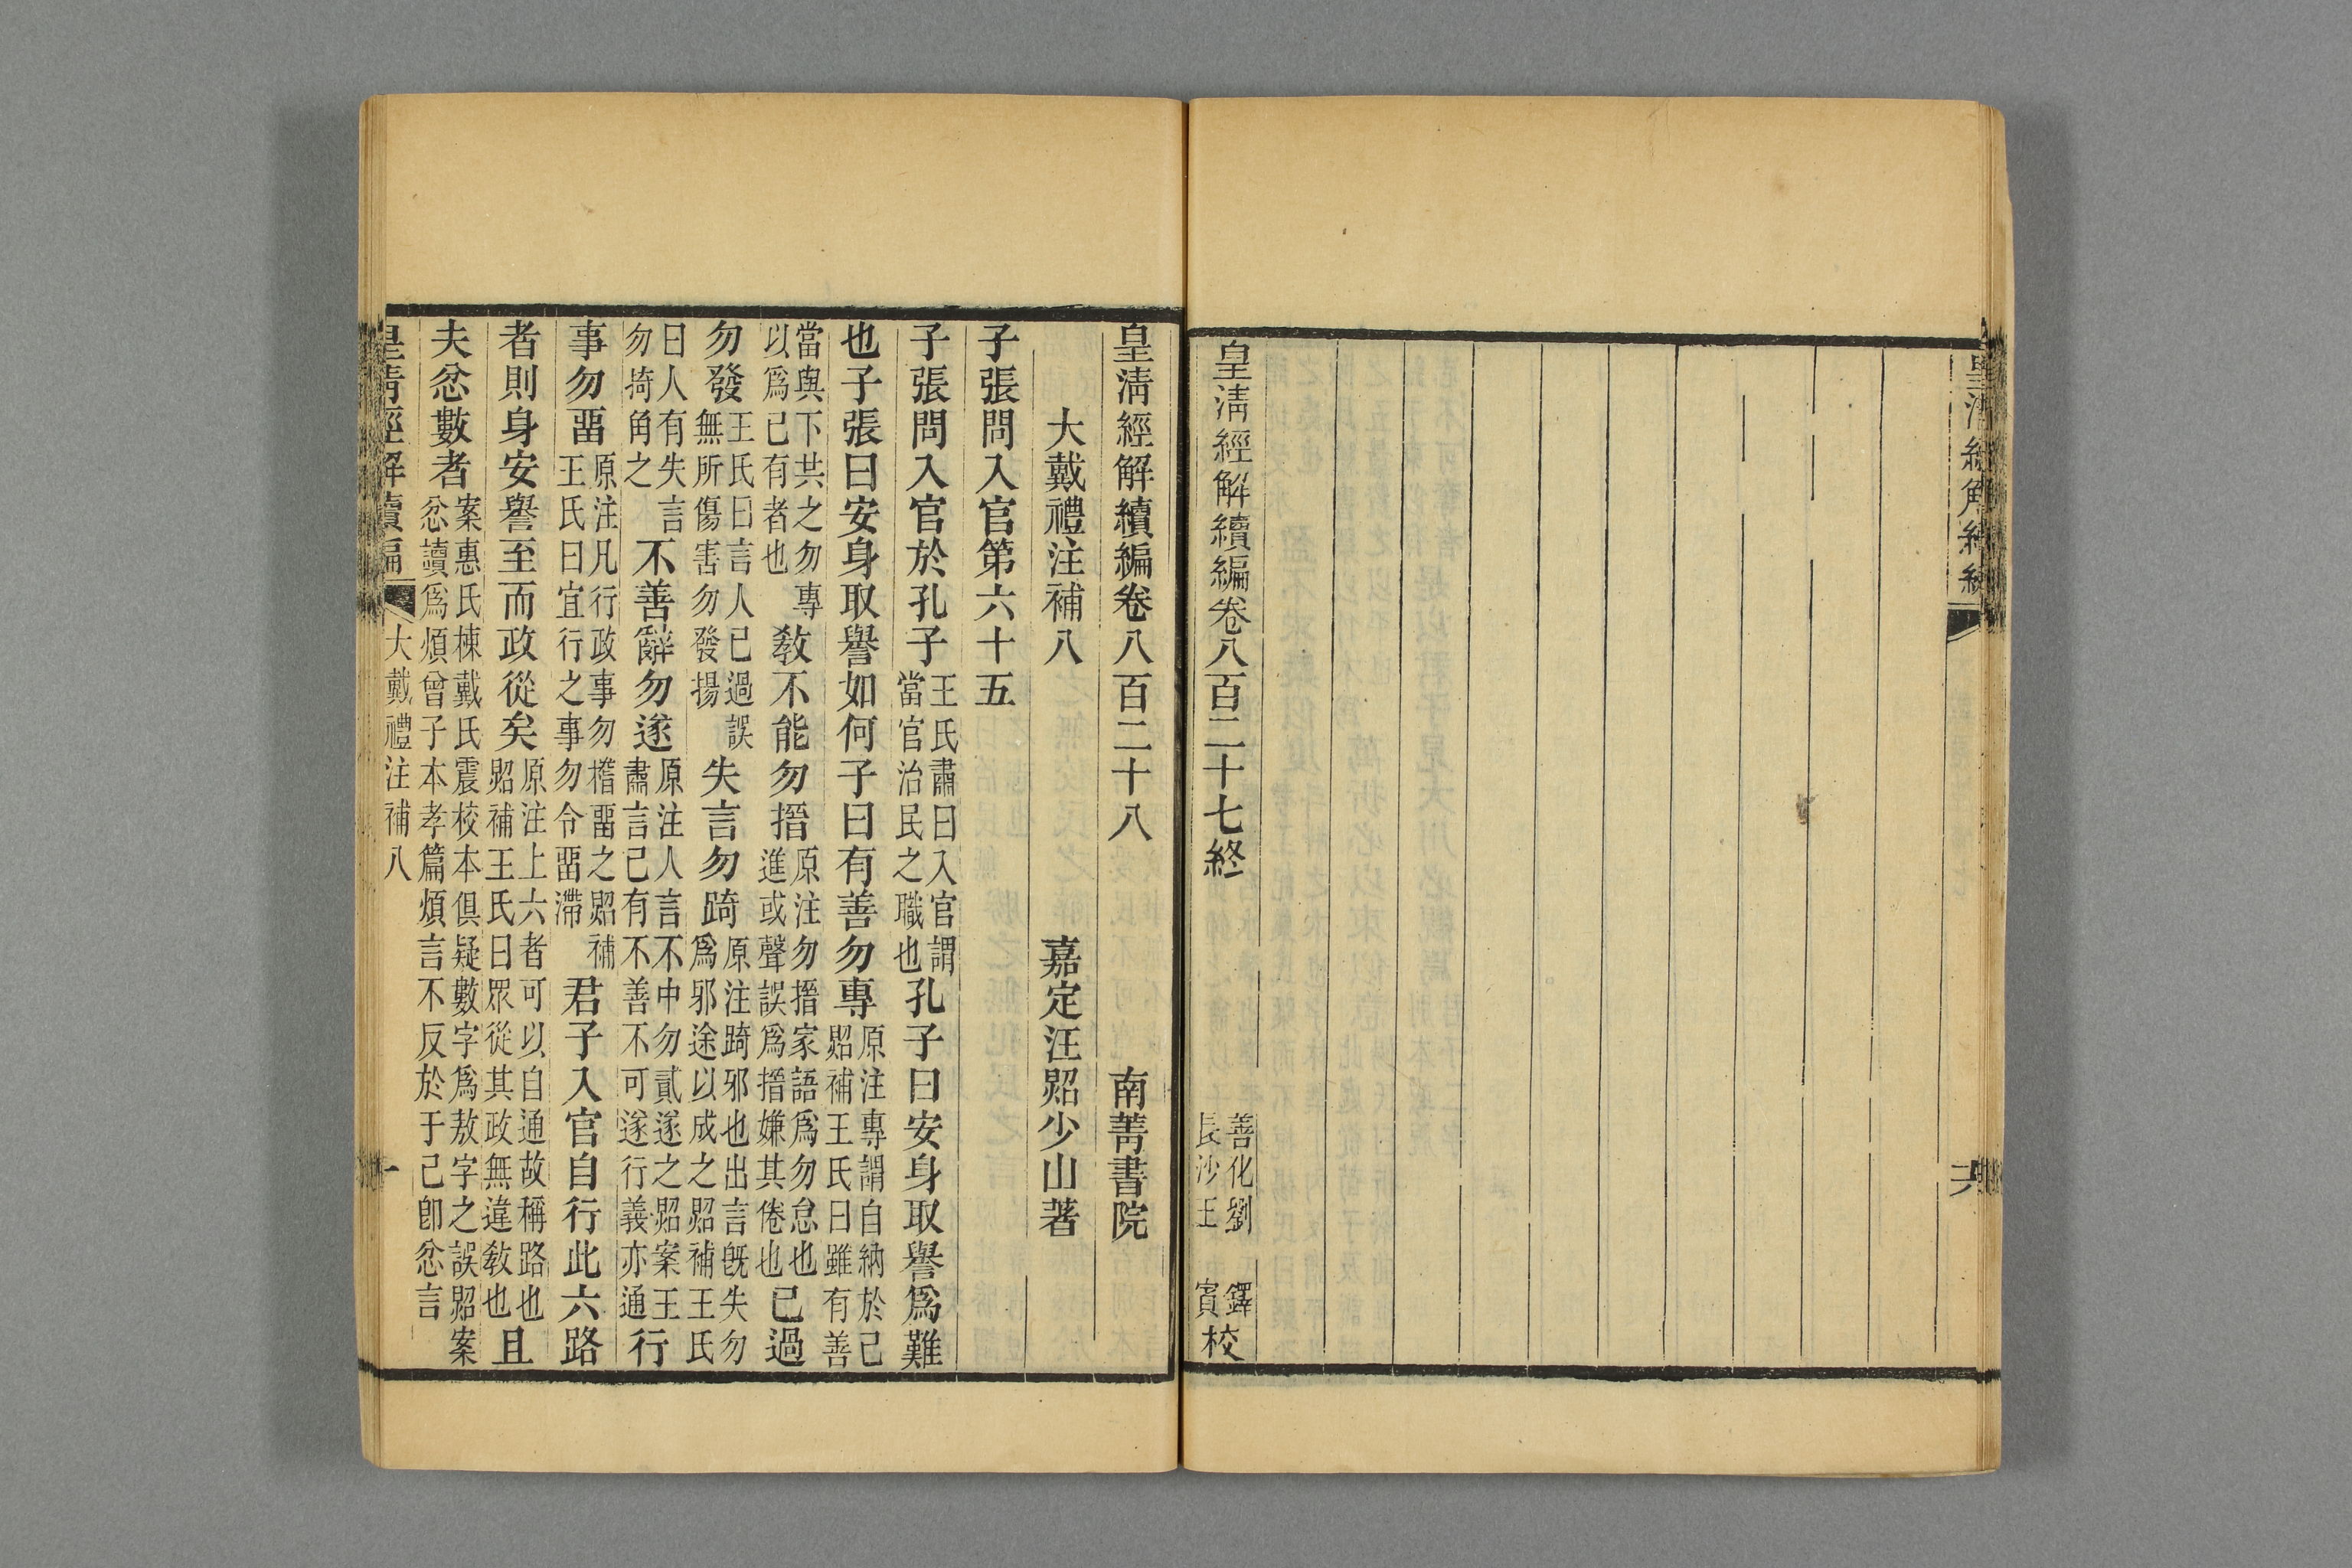 皇清經解續編
六
皇清經解續編卷八百二十七終
善化劉 鐸
長沙王 賓
校
皇清經解續編卷八百二十八 南菁書院
大戴禮注補八 嘉定汪照少山著
子張問入官第六十五
子張問入官於孔子王氏肅曰入官謂當官治民之職也孔子曰安身取譽爲難
也子張曰安身取譽如何子曰有善勿專原注專謂自納於己照補王氏曰雖有善
當與下共之勿專以爲己有者也教不能勿搢原注勿搢家語爲勿怠也進或聲誤爲搢嫌其倦也已過
勿發王氏曰言人已過誤無所傷害勿發揚失言勿踦原注踦邪也出言旣失勿爲邪途以成之照補王氏
曰人有失言勿掎角之不善辭勿遂原注人言不中勿貳遂之照案王肅言己有不善不可遂行義亦通行
事勿畱原注凡行政事勿稽畱之照補王氏曰宜行之事勿令畱滯君子入官自行此六路
者則身安譽至而政從矣原注上六者可以自通故稱路也照補王氏曰眾從其政無違教也且
夫忿數者案惠氏棟戴氏震校本俱疑數字爲敖字之誤照案忿讀爲煩曾子本孝篇煩言不反於于己卽忿言
皇清經解續編 大戴禮注補八 一